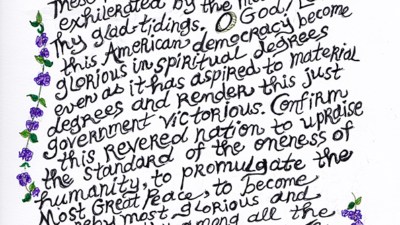 These
exhilerated by the
Thy glad-tidings. O God!
this American democracy become
glorious in spiritual degrees
even as it has aspired to material
degrees and render this just
government victorious. Confirm
this revered nation to upraise
the standard of the oneness of
humanity, to promulgate the
Most Great Peace, to become
most glorious and
among all the